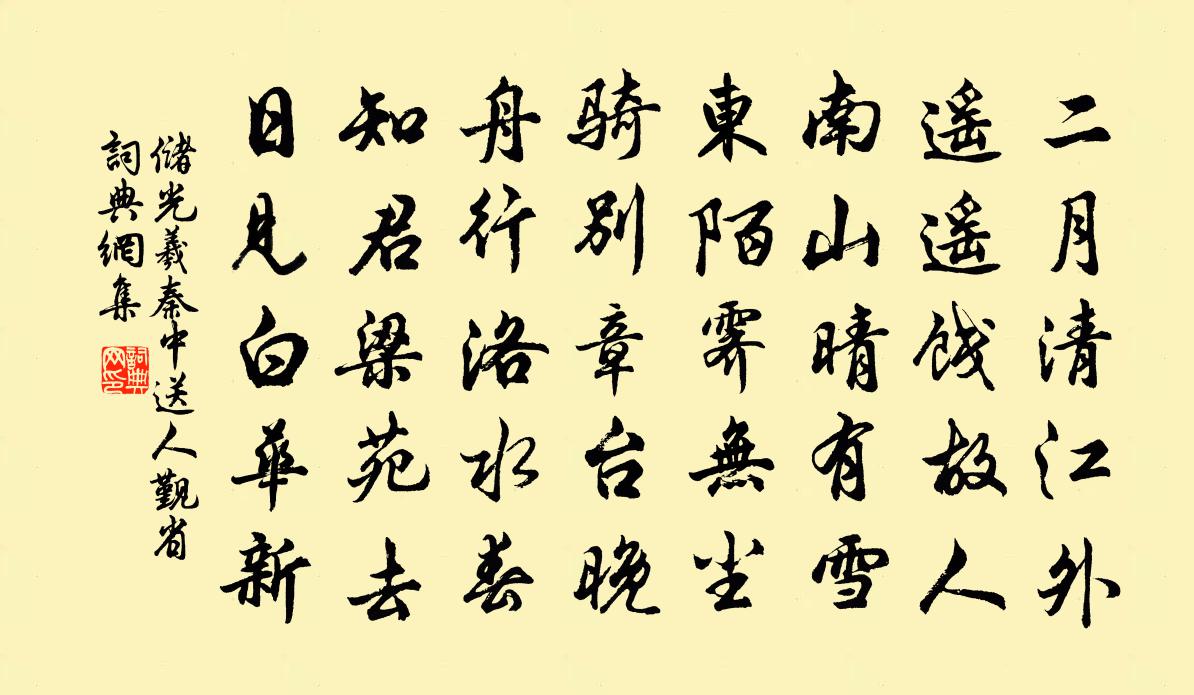 二月清江外
遥遥餞故人
南山晴有雪
東陌霽無尘
骑别章台晚
舟行洛水春
知君梁苑去
日見白華新
儲光羲秦中送人覲省
詞典網集
詞典网印